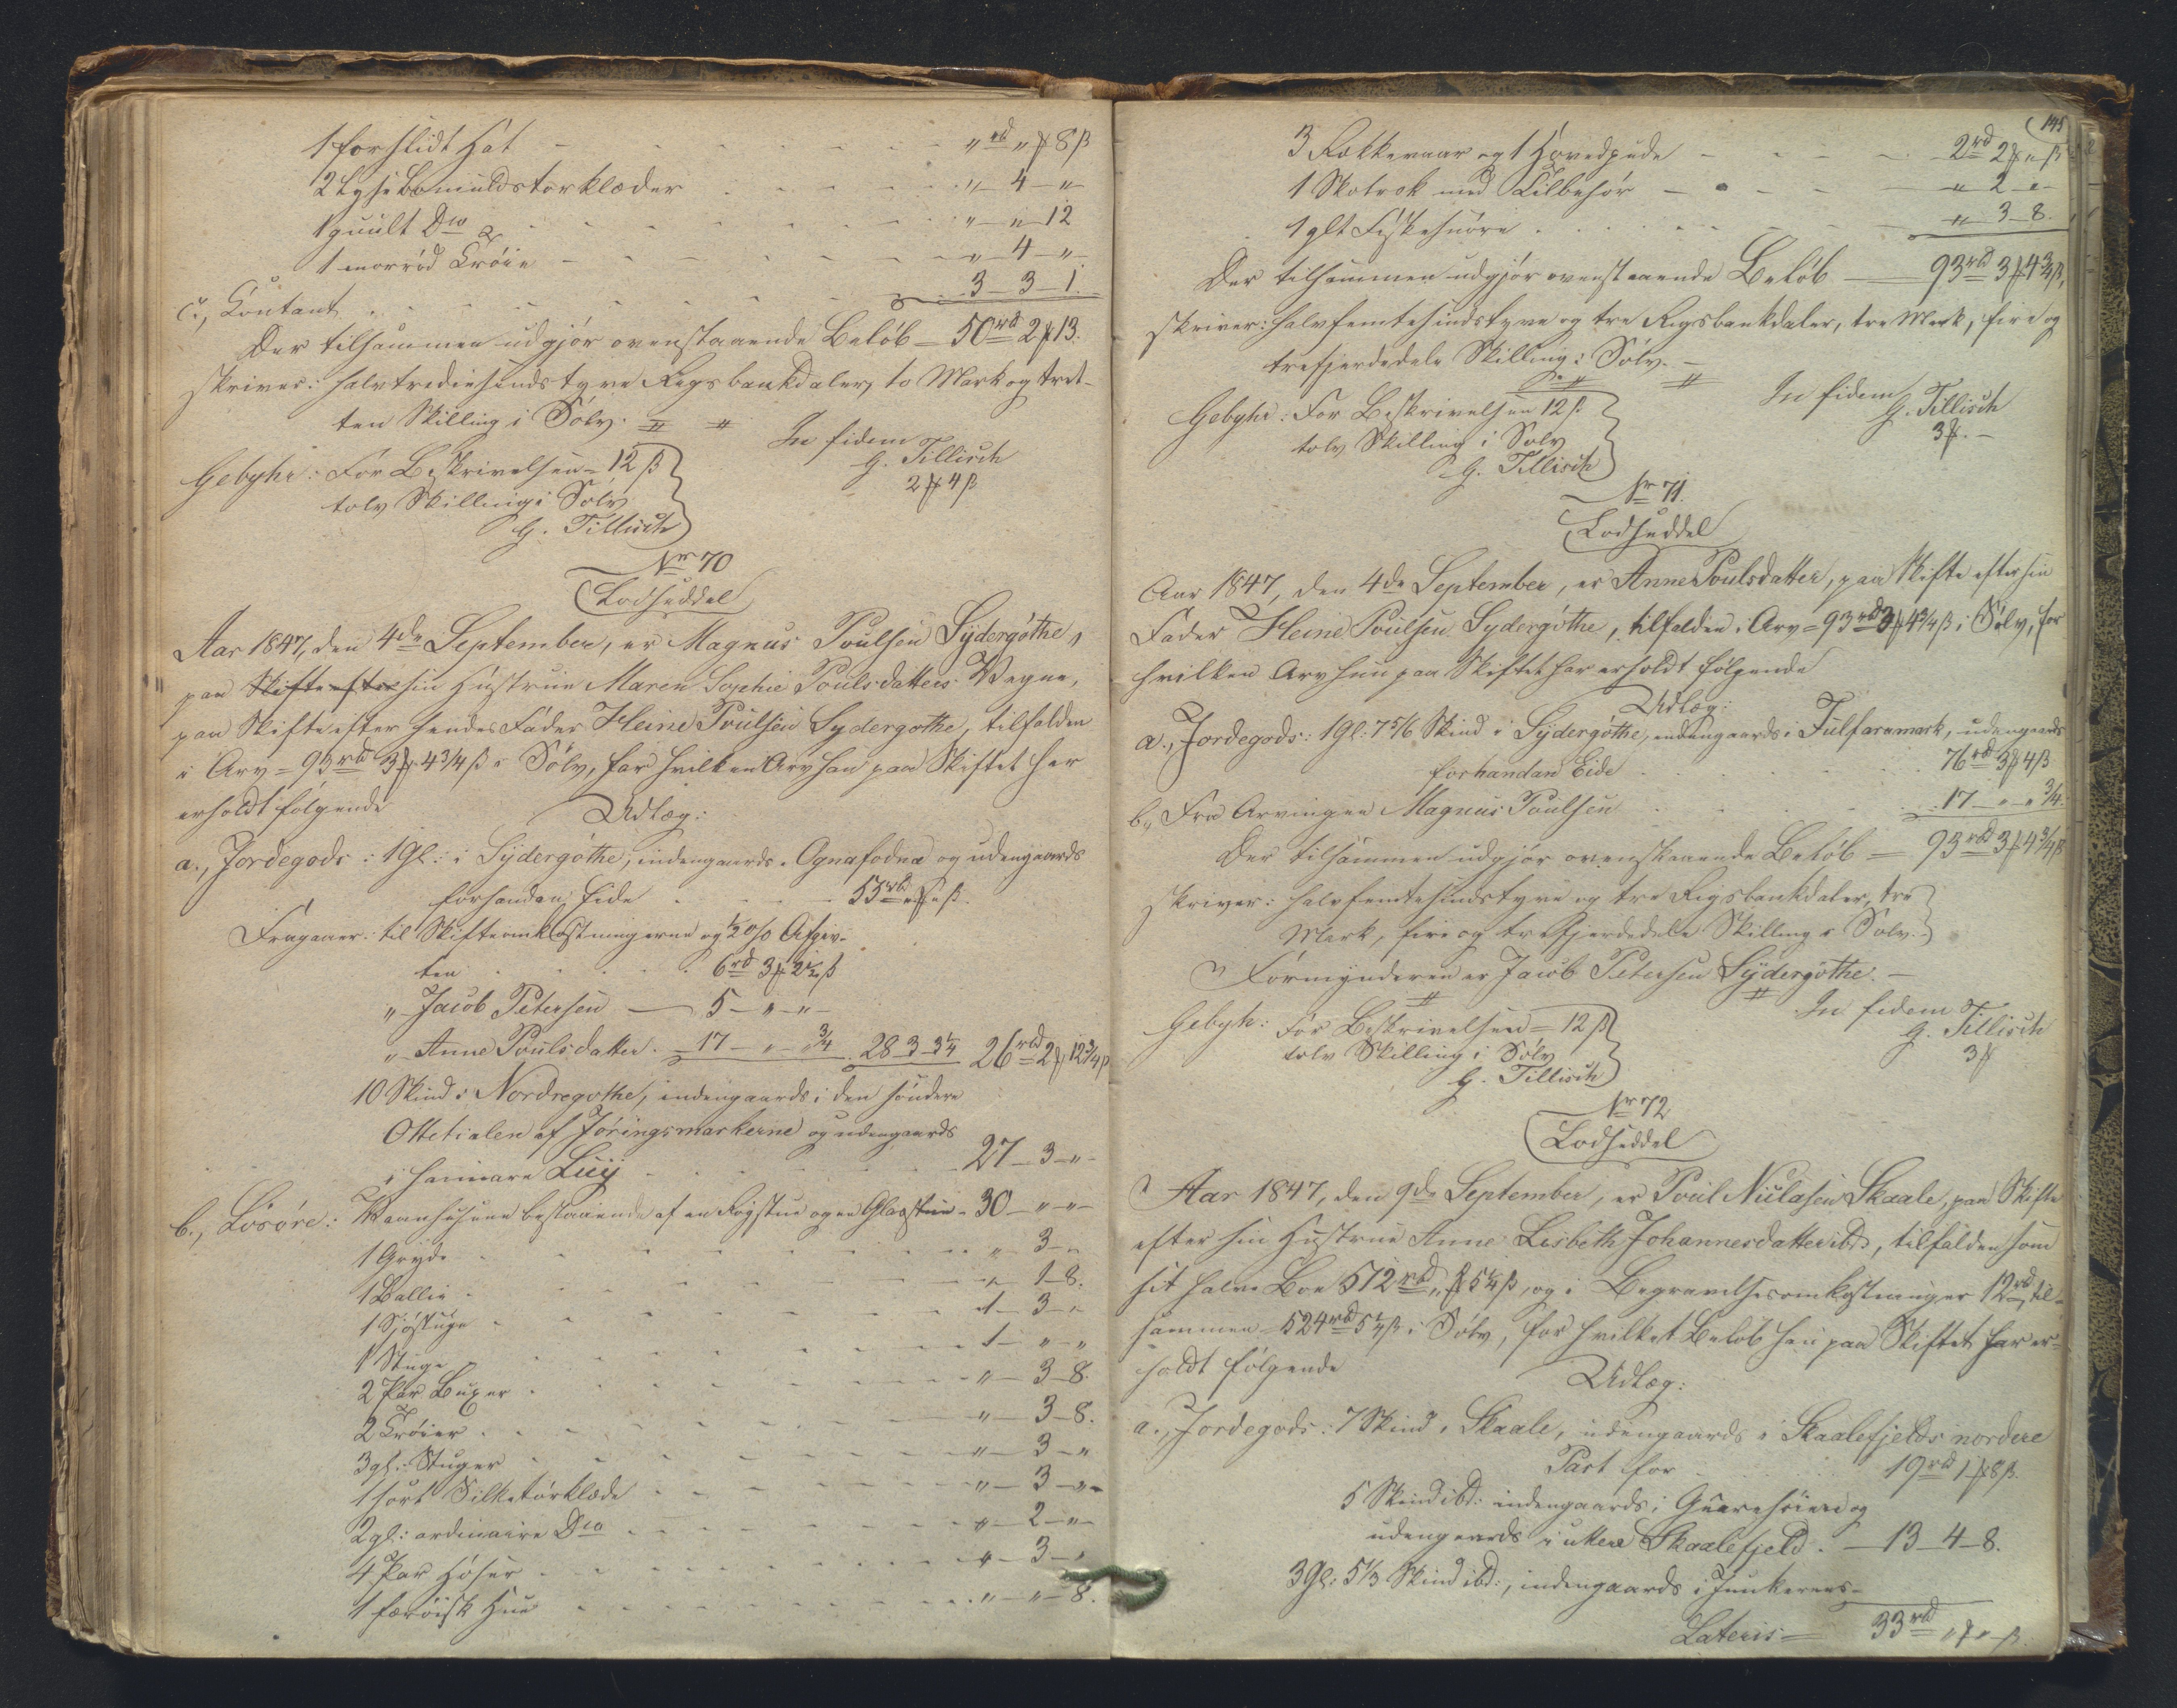 1 forslidt Hat - - - - - - „ rd „ ℳ 8 ß
2 lyse Bomuldstørklæder - - - „ - 4 - „
1 guult Dto - - - - „ - „ - 12
1 morrød Trøie - - - - „ - 4 - „
c., Contant - - - - 3 - 3 - 1.
Der tilsammen udgjør ovenstaaende Beløb - 50 rd 2 ℳ 13.
skriver: halvtrediesindstyve Rigsbankdaler, to Mark og tret-
ten Skilling i Sølv.
In fidem
G. Tillisch
2 ℳ 4 ß
Gebyhr: For Beskrivelsen = 12 ß
tolv Skilling i Sølv
G. Tillisch
Nr 70
Lodseddel
Aar 1847, den 4de September, er Magnus Poulsen Sydergøthe,
paa Skifte efter sin Hustrue Maren Sophie Poulsdatters Vegne,
paa Skifte efter hendes Fader Heine Poulsen Sydergøthe, tilfalden
i Arv = 93 rbd 3 ℳ 4 3/4 ß i Sølv, for hvilken Arv han paa Skiftet har
erholdt følgende
Udlæg:
a., Jordegods: 1 Gl: i Sydergøthe, indengaards i Ognafodna og udengaards
forhandan Eide - - - 55 rbd „ ℳ „ ß.
Fragaaer: til Skifteomkostningerne og 1/2 0/0 Afgiv-
ten - - - 6 rd 3 ℳ 2 1/2 ß
„ Jacob Petersen - 5 - „ - „ -
„ Anne Poulsdatter - 17 - „ - „ 3/4 28 - 3 - 3 1/4 26 rbd 2 ℳ 12 3/4 ß
10 Skind i Nordregøthe, indengaards i den søndere
Ottetialen af Jøringsmarkerne og udengaards
i Luij - - - 27 - 3 - „ -
b., Løsøre: Vaanhusene bestaaende af en Røgstue og en Glasstue - 30 - „ - „ -
1 Gryde - - - „ - 3 - „
1 Ballie - - - „ - 1 - 8.
1 Sjøstuge - - - 1 - 3 - „
1 Stuge - - - 1 - „ - „
2 Par Buxer - - - „ - 3 - 8.
2 Trøier - - - „ - 3 - 8.
3 gl: Stuger - - - „ - 3 - „
1 sort Silketørklæde - - - „ - 3 - „ -
2 gl: ordinaire Dto - - - „ - 2 - „ -
4 Par Hoser - - - „ - 3 - „
1 færøisk Hue - - - „ - „ - 8.
145
3 og 1 Hovedpude - - - 2 rd 2 ℳ „ ß
1 Skotrok med Tilbehør - - - „ 2 - „ -
1 glt Fiskesnøre - - - „ 3 - 8.
Der tilsammen udgjør ovenstaaende Beløb - 93 rbd 3 ℳ 4 3/4 ß,
skriver: halvfemtesindstyve og tre Rigsbankdaler, tre Mark, fire og
trefjerdedele Skilling i Sølv. -
In fidem
G. Tillisch
3 ℳ. -
Gebyhr: For Beskrivelsen 12 ß.
tolv Skilling i Sølv
G. Tillisch
Nr 71.
Lodseddel
Aar 1847, den 4de September, er Anne Poulsdatter, paa Skifte efter sin
Fader Heine Poulsen Sydergøthe, tilfalden i Arv = 93 rbd 3 ℳ 4 3/4 ß i Sølv, for
hvilken Arv hun paa Skiftet har erholdt følgende
Udlæg:
a., Jordegods: 1 Gl: 7 5/6 Skind i Sydergøthe, indengaards i Fulfaramark, udengaards
forhandan Eide - - - 76 rd 3 ℳ 4 ß
b., Fra Arvingen Magnus Poulsen - - - 17 - „ - „ 3/4.
Der tilsammen udgjør ovenstaaende Beløb = 93 rbd 3 ℳ 4 3/4 ß
skriver: halvfemtesindstyve og tre Rigsbankdaler, tre
Mark, fire og trefjerdedele Skilling i Sølv.
Formynderen er Jacob Petersen Sydergøthe. -
In fidem
G. Tillisch
3 ℳ
Gebyh: For Beskrivelsen = 12 ß
tolv Skilling i Sølv
G. Tillisch
Nr 72
Lodseddel
Aar 1847, den 9de September, er Poul Niclasen Skaale, paa Skifte
efter sin Hustrue Anne Lisbeth Johannesdatter ibd:, tilfalden som
sit halve Boe 512 rbd „ ℳ 5 1/4 ß, og i Begravelsesomkostninger 12 rd, til-
sammen - 524 rbd 5 1/4 ß i Sølv, for hvilket Beløb han paa Skiftet har er-
holdt følgende
Udlæg:
a., Jordegods: 7 Skind i Skaale, udengaards i Skaalefjelds nordere
Part for - - - 19 rbd 1 ℳ 8 ß.
5 Skind ibd: indengaards i og
udengaards i uttere Skaalefjeld. - 13 - 4 - 8.
3 Gl: 5 1/3 Skind ibd:, indengaards i Junkerens-
Lateris = 33 rbd „ ℳ „ ß